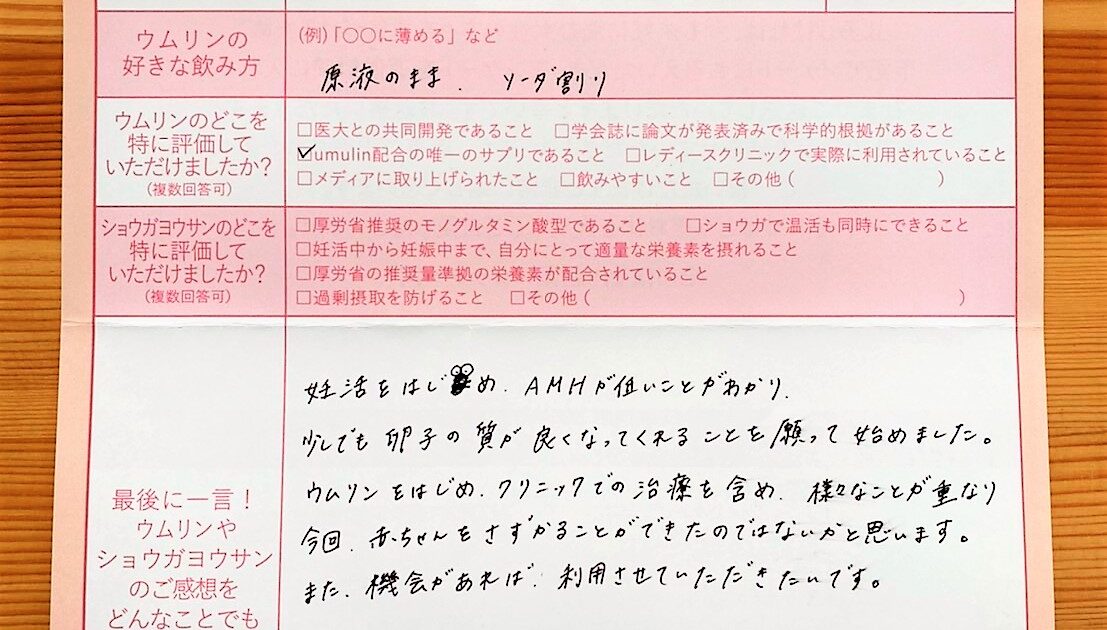 ウムリンの
好きな飲み方
(例)「〇〇に薄める」など
原液のまま. ソーダ割り
ウムリンのどこを
特に評価して
いただけましたか?
(複数回答可)
□医大との共同開発であること □学会誌に論文が発表済みで科学的根拠があること
☑umulin配合の唯一のサプリであること □レディースクリニックで実際に利用されていること
□メディアに取り上げられたこと □飲みやすいこと □その他( )
ショウガヨウサンのどこを
特に評価して
いただけましたか?
(複数回答可)
□厚労省推奨のモノグルタミン酸型であること □ショウガで温活も同時にできること
□妊活中から妊娠中まで、自分にとって適量な栄養素を摂れること
□厚労省の推奨量準拠の栄養素が配合されていること
□過剰摂取を防げること □その他( )
最後に一言!
ウムリンや
ショウガヨウサン
のご感想を
どんなことでも
妊活をはじめ、AMHが低いことがわかり、
少しでも卵子の質が良くなってくれることを願って始めました。
ウムリンをはじめ、クリニックでの治療を含め、様々なことが重なり
今回、赤ちゃんをさずかることができたのではないかと思います。
また、機会があれば、利用させていただきたいです。